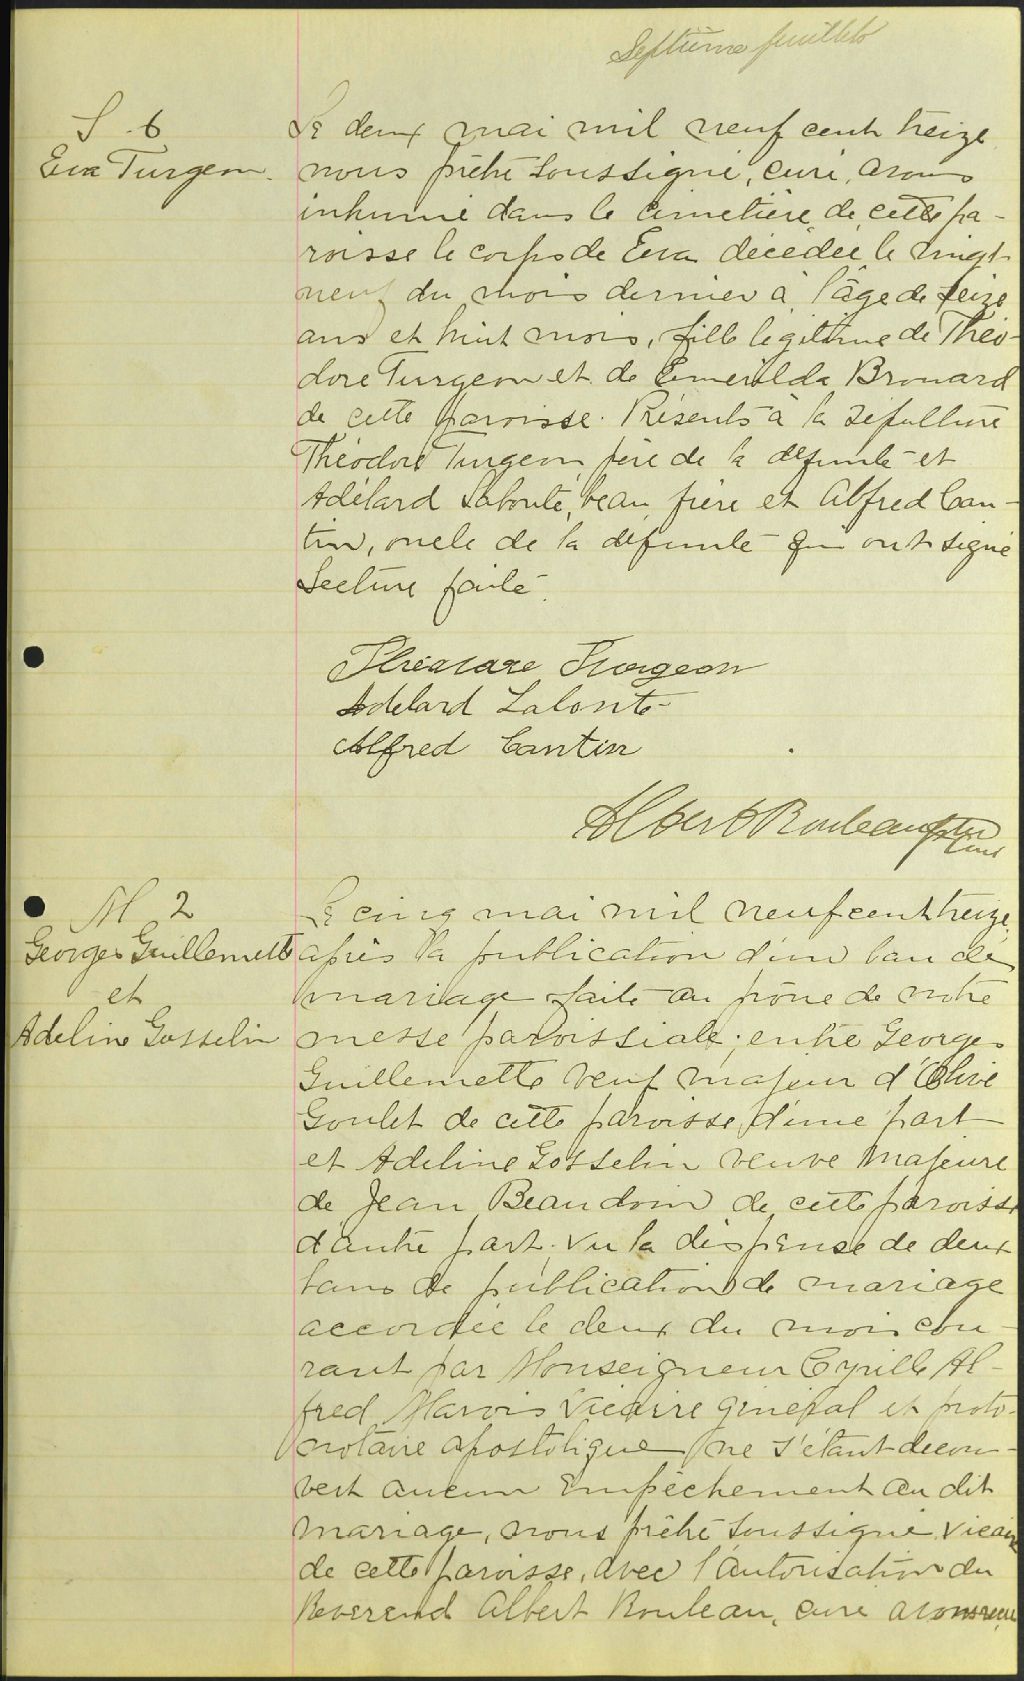 Septième feuillet
S 6
Eva Turgeon.
Le deux mai mil neuf cent treize
nous prêtre soussigné, curé, avons
inhumé dans le cimetière de cette pa-
roisse le corps de Eva décédée le vingt-
neuf du mois dernier à l'âge de seize
ans et huit mois, fille légitime de Théo-
dore Turgeon et de Emerilda Brouard
de cette paroisse. Présents à la sépulture
Théodore Turgeon, père de la défunte et
Adélard Lalonté, beau frère et Alfred Can-
tin, oncle de la défunte qui ont signé
Lecture faite.
Turgeon
Adelard Lalonte
Alfred Cantin
Albert Rouleau ptre
curé
M 2
Georges Guillemette
et
Adeline Gosselin
Le cinq mai mil neuf cent treize,
après la publication d'un ban de
mariage faite au prône de notre
messe paroissiale, entre Georges
Guillemette veuf majeur d'Olive
Goulet de cette paroisse d'une part
et Adeline Gosselin veuve majeure
de Jean Beaudoin de cette paroisse
d'autre part; vu la dispense de deux
bans de publication de mariage
accordée le deux du mois cou-
rant par Monseigneur Cyrille Al-
fred Marois Vicaire général et proto-
notaire apostolique ne s'étant décou-
vert aucun empêchement au dit
mariage, nous prêtre soussigné, vicaire
de cette paroisse, avec l'autorisation du
Reverend Albert Rouleau, curé avons reçu